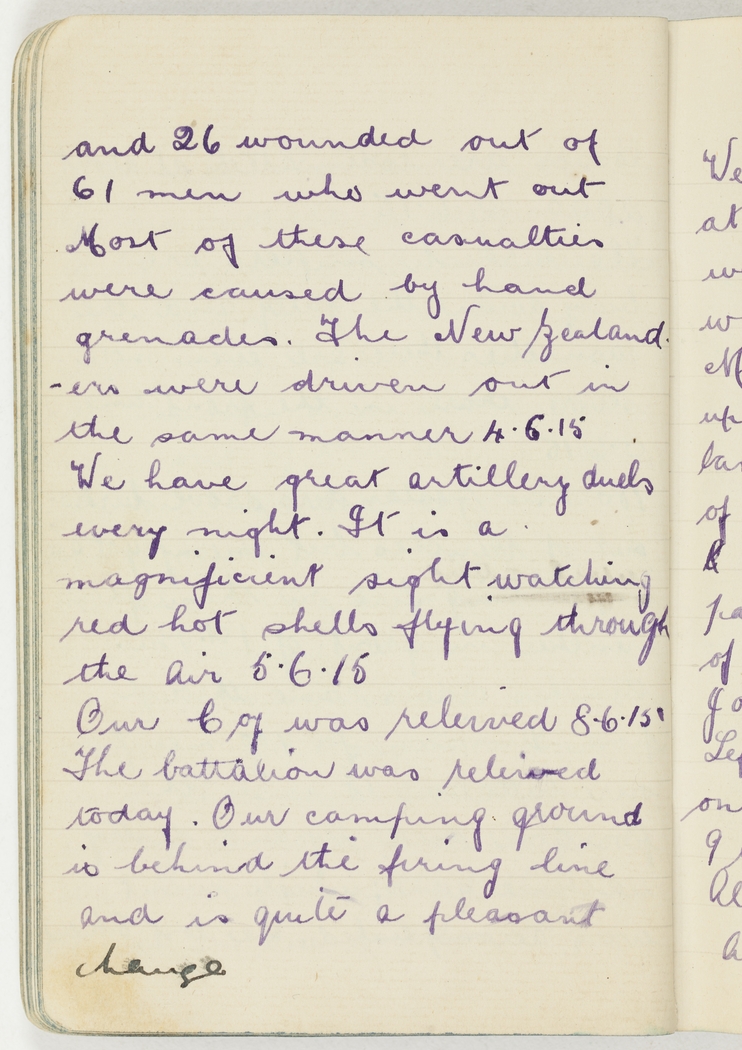 and 26 wounded out of
61 men who went out
Most of these casualties
were caused by hand
grenades. The New Zealand.
-ers were driven out in
the same manner 4.6.15
We have great artillery duels
every night. It is a
magnificient sight watching
red hot shells flying through
the air 5.6.15
Our Coy was releived 8.6.15
The battalion was releived
today. Our camping ground
is behind the firing line
and is quite a pleasant
change
We
at
w
w
M
up
la
of
pa
of
on